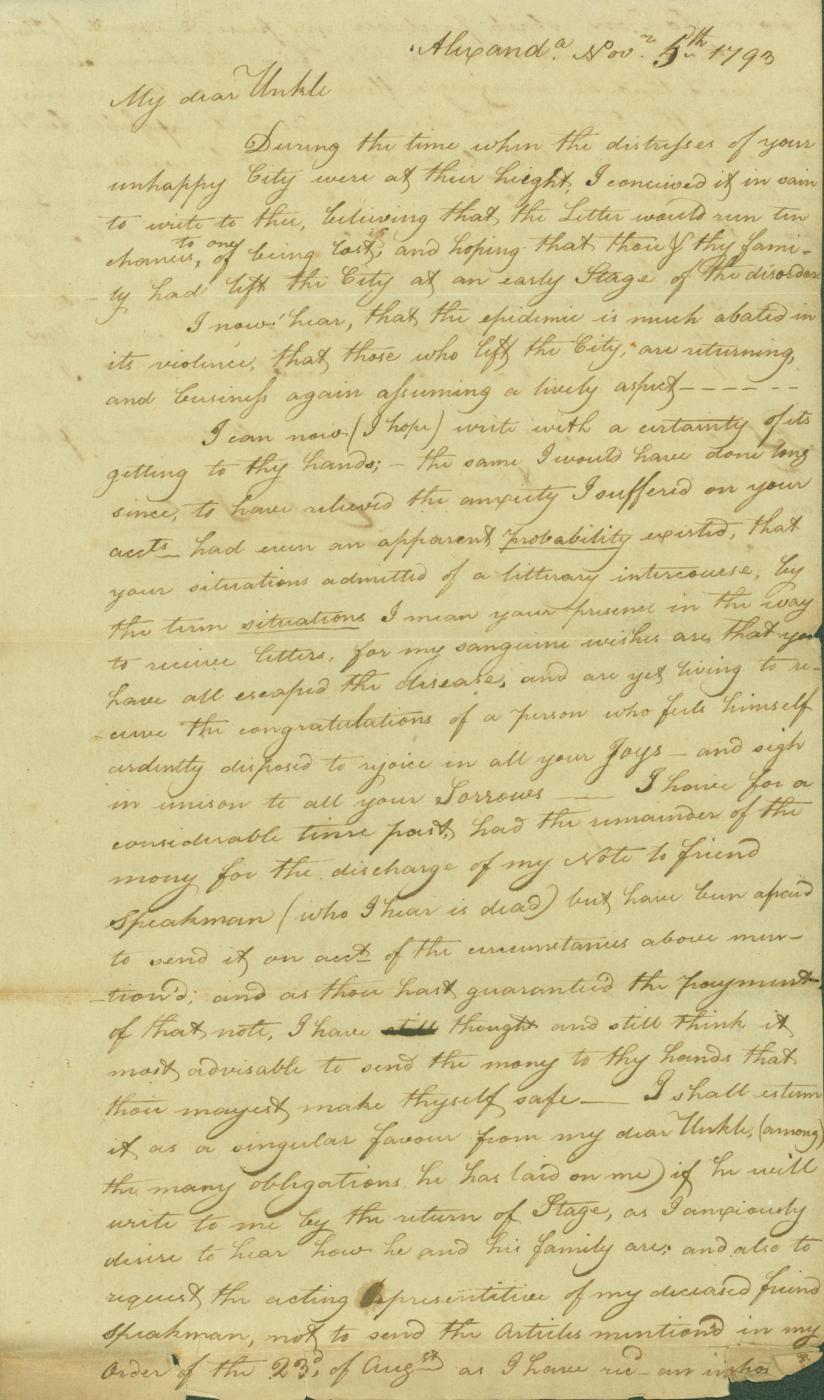 Alexand.a Nov.r 5th 1793
My dear Unkle
During the time when the distresses of your
unhappy City were at their height, I conceived it in vain
to write to thee, believing that the Letter would run ten
chances, to one, of being lost; and hoping that thou & thy fami-
-ly had left the City at an early Stage of the disorder.
I now hear, that the epidemic is much abated in
its violence, that those who left the City, are returning,
and business again assuming a lively aspect------
I can now (I hope) write with a certainty of its
getting to thy hands; - the same I would have done long
since, to have relieved the anxiety I suffered on your
accts. had even an apparent probability existed, that
your situations admitted of a litterary intercourse, by
the term situations I mean your presence in the way
to receive letters, for my sanguine wishes are, that you
have all escaped the disease, and are yet living to re-
-ceive the congratulations of a person who feels himself
ardently disposed to rejoice in all your Joys - and sigh
in unison to all your Sorrows — I have for a
considerable time past, had the remainder of the
mony for the discharge of my Note to friend
Speakman (who I hear is dead) but have been afraid
to send it on acct. of the circumstances above men-
-tion'd; and as thou hast guaranteed the payment
of that note, I have still thought and still think it
most advisable to send the mony to thy hands that
thou mayest make thyself safe — I shall esteem
it as a singular favour from my dear Unkle, (among
the many obligations he has laid on me) if he will
write to me by the return of Stage, as I anxiously
desire to hear how he and his family are; and also to
request the acting representitive of my deceased friend
Speakman, not to send the Articles mention'd in my
Order of the 23d. of Augst. as I have recd- an